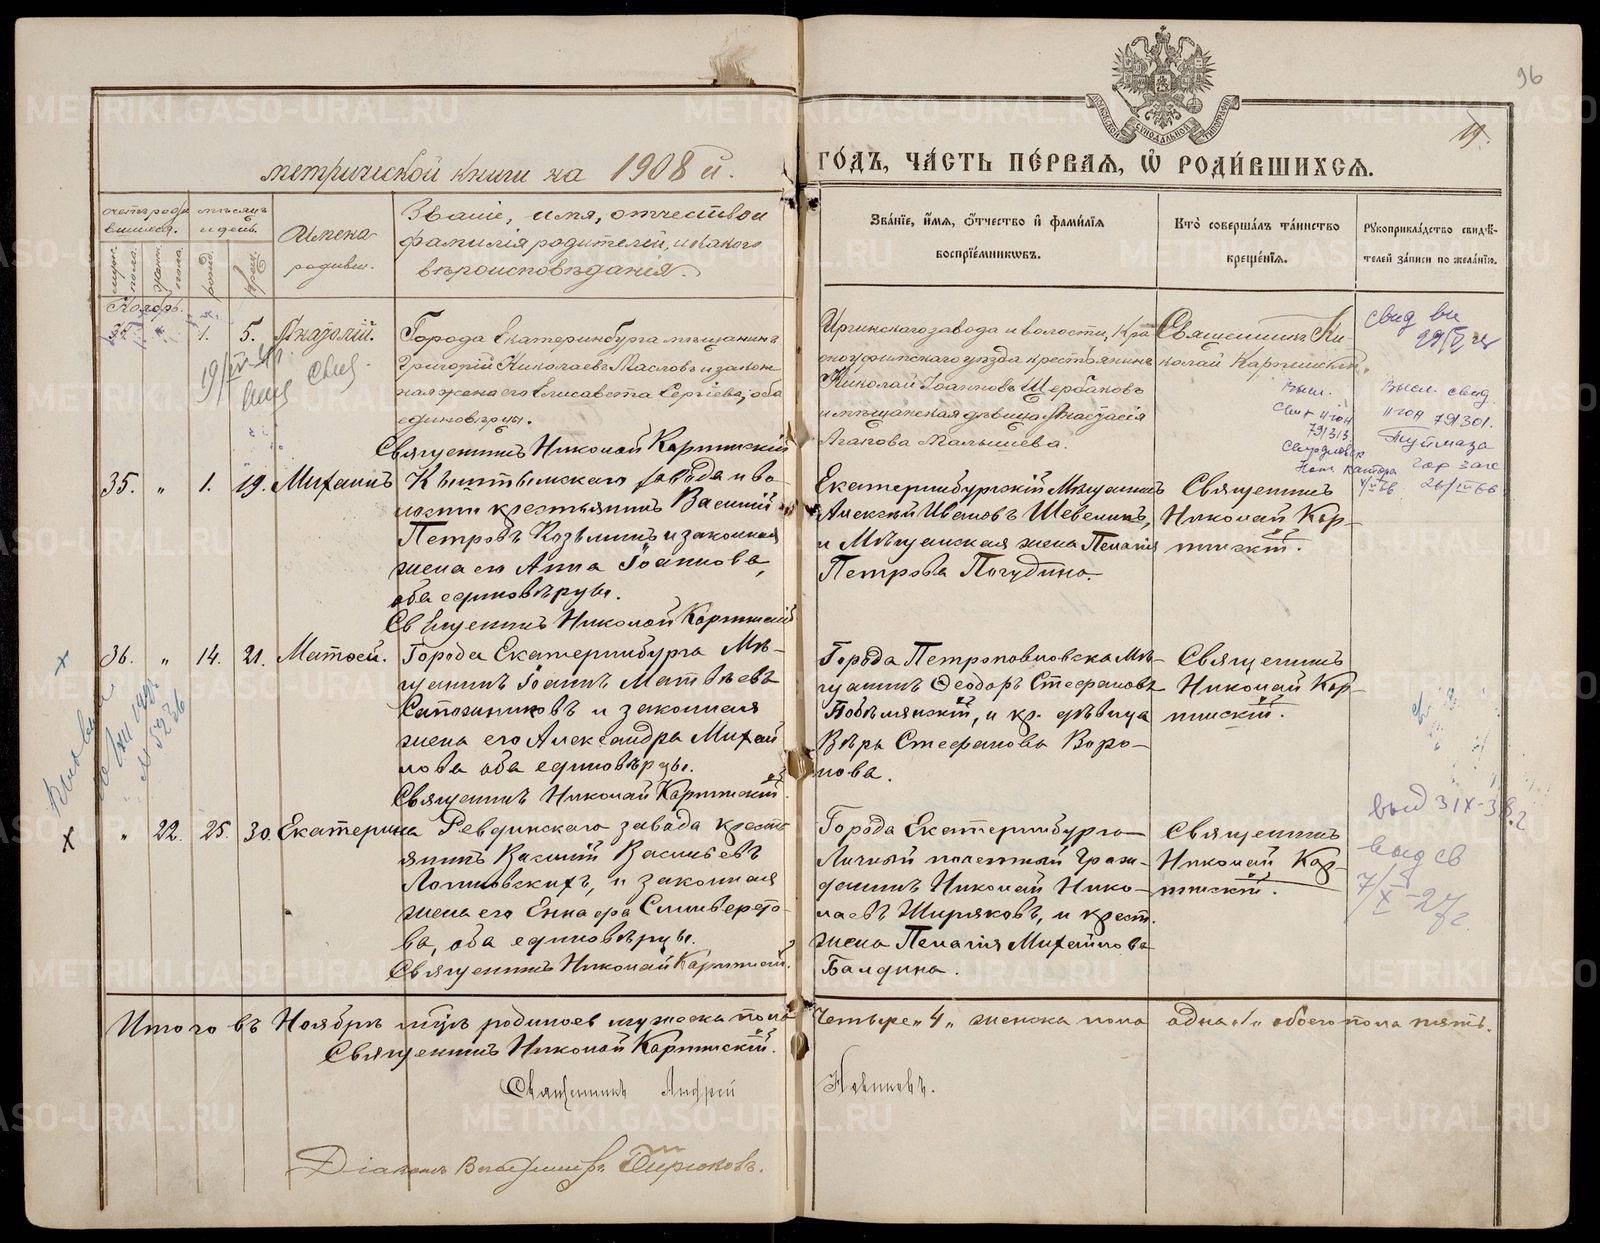 96
19.
метрической книги на 1908 й. ГО́ДЪ, ЧА́СТЬ ПЕ́РВАЯ, Ѡ҆ РОДИ́ВШИХСЯ.
МОСКОВСКОЙ СѴНОДАЛЬНОЙ ТИПОГРАФІИ
счетъ роди
вшихся.
муж.
пола.
женс.
пола.
мѣсяцъ
и день.
рожд.
крещ.
Имена
родивш.
Званіе, имя, отчество и
фамилія родителей, и какого
вѣроисповѣданія.
Зва́нїе, и҆́мя, ѻ҆́тчество и҆ фами́лїя
воспрїе́мникѡвъ.
Кто̀ соверша́лъ та́инство
креще́нїя.
Рꙋкоприкла́дство свидѣ́-
телей за́писи по жела́нїю.
Ноябрь.
1. 5. Анатолій.
Города Екатеринбурга мѣщанинъ
Григорій Николаевъ Масловъ и закон
ная жена его Елисавета Сергіева, оба
единовѣрцы.
Священникъ Николай Карпинскій
Иргинскаго завода и волости, Кра
сноуфимскаго уѣзда крестьянинъ
Николай Іоанновъ Щербаковъ
и мѣщанская дѣвица Анастасія
Агапова Малышева.
Священникъ Ни-
колай Карпинскій.
свид
выcл. свид.
791301.
791313
35. " 1. 19. Михаилъ
Кыштымскаго завода и во
лости крестьянинъ Василій
Петровъ Козьминъ и законная
жена его Анна Іоаннова,
оба единовѣрцы.
Священникъ Николай Карпинскій
Екатеринбургскій Мѣщанинъ
Алексѣй Ивановъ Шевелинъ,
и Мѣщанская жена Пелагія
Петрова Погудина.
Священникъ
Николай Кар-
пинскій.
36. " 14. 21. Матѳей.
Города Екатеринбурга Мѣ-
щанинъ Іоаннъ Матвѣевъ
Сапожниковъ и законная
жена его Александра Михай
лова оба единовѣрцы.
Священникъ Николай Карпинскій.
Города Петропавловска Мѣ-
щанинъ Ѳеодоръ Стефановъ
Побѣлянскій, и кр. дѣвица
Вѣра Стефанова Воро-
нова.
Священникъ
Николай Кар-
пинскій.
х " 22. 25. 30. Екатерина
Ревдинскаго завода кресть
янинъ Василій Васильевъ
Логиновскихъ, и законная
жена его Еннафа Сильверсто-
ва, оба единовѣрцы.
Священникъ Николай Карпинскій.
Города Екатеринбурга
Личный почетный Граж-
данинъ Николай Нико-
лаевъ Ширяковъ, и крест.
жена Пелагія Михайлова
Балдина.
Священникъ
Николай Кар-
пинскій.
выд св
Итого въ Ноябрѣ м-цѣ родилось мужеска пола Четыре „4„ женска пола одна „1„ обоего пола пять.
Священникъ Николай Карпинскій.
Священникъ Андрей Новиковъ.
Діаконъ Владиміръ Бирюковъ.
METRIKI.GASO-URAL.RU